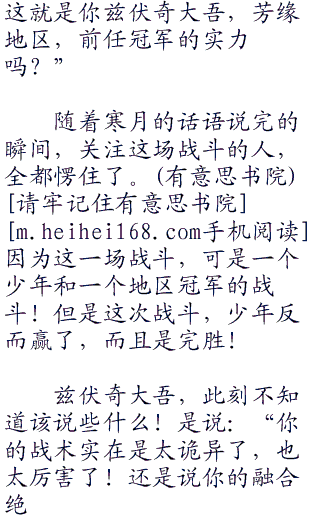 这就是你兹伏奇大吾，芳缘
地区，前任冠军的实力
吗？”
随着寒月的话语说完的
瞬间，关注这场战斗的人，
全都愣住了。(有意思书院)
[请牢记住有意思书院]
[m.heihei168.com手机阅读]
因为这一场战斗，可是一个
少年和一个地区冠军的战
斗！但是这次战斗，少年反
而赢了，而且是完胜！
兹伏奇大吾，此刻不知
道该说些什么！是说：“你
的战术实在是太诡异了，也
太厉害了！还是说你的融合
绝